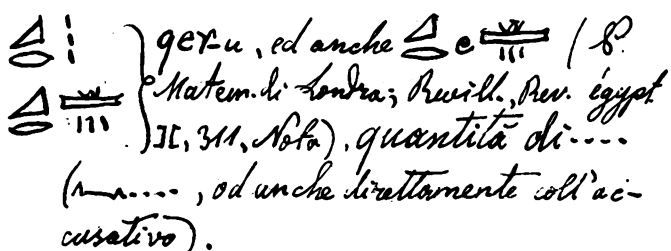 qer-u, ed anche e (P.
Matem. di Londra; Revill., Rev. égypt
II, 311, Nota), quantità di....
(...., od anche direttamente coll'ac-
cusativo).